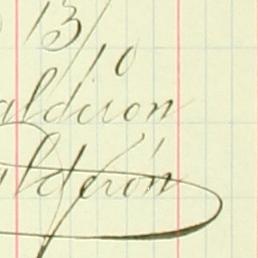 13/10
alderon
alderón